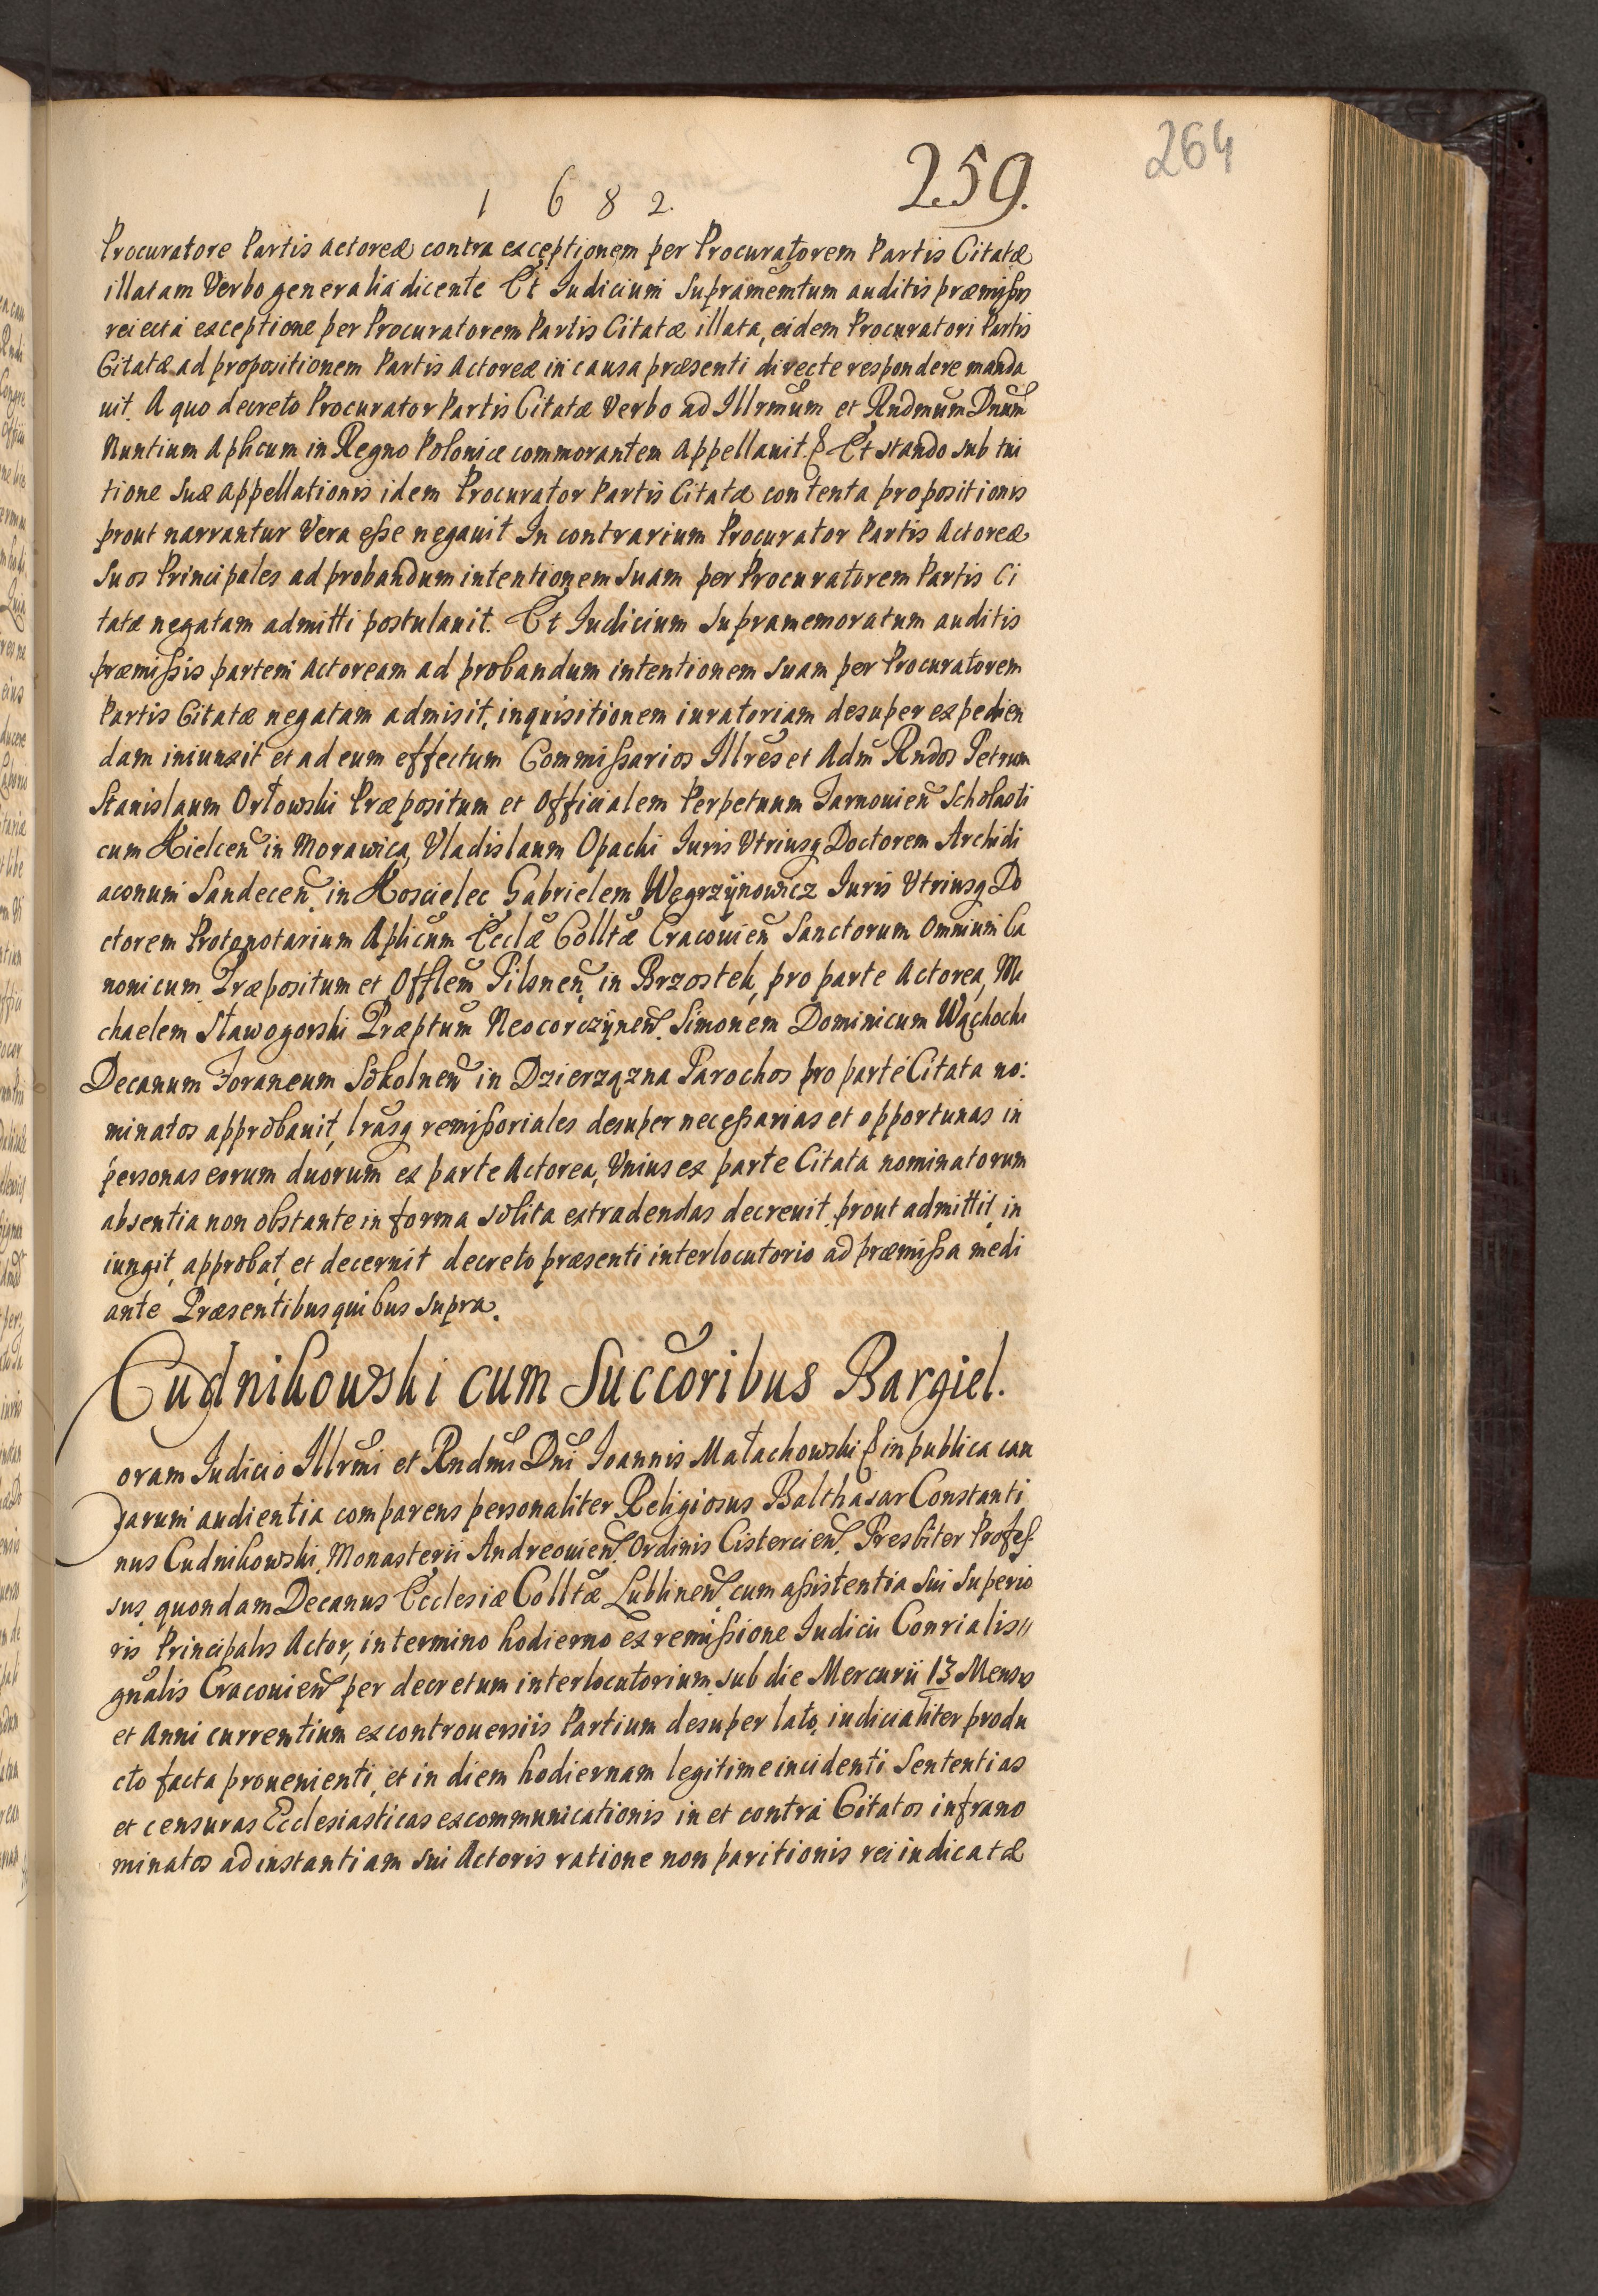 264
259.
1 6 8 2.
Procuratore Partis actoreæ contra exceptionem per Procuratorem Partis Citatæ
illatam Verbo generalia dicente Et Iudicium Supramemtum auditis præmissis
reiecta exceptione per Procuratorem Partis Citatæ illata, eidem Procuratori Partis
Citatæ ad propositionem Partis Actoreæ in causa præsenti directe respondere manda
uit. A quo decreto Procurator Partis Citatæ Verbo ad Illrmum et Rndmum Dnum
Nuntium Aplicum in Regno Poloniæ commorantem Appellauit. Et stando sub tui
tione suæ appellationis idem Procurator Partis Citatæ contenta propositionis
prout narrantur Vera esse negauit In contrarium Procurator Partis Actoreæ
Suos Principales ad probandum intentionem suam per Procuratorem Partis Ci
tatæ negatam admitti postulauit. Et Iudicium Supramemoratum auditis
præmissis partem Actoream ad probandum intentionem suam per Procuratorem
Partis Citatæ negatam admisit, inquisitionem iuratoriam desuper expedien
dam iniunxit et ad eum effectum Commissarios Illres et Adm Rndos Petrum
Stanislaum Orłowski Præpositum et Officialem Perpetuum Tarnouien Scholasti
cum Kielcen in Morawica, Vladislaum Opacki Iuris Vtriusq Doctorem Archidi
aconum Sandecen in Koscielec Gabrielem Węgrzÿnowicz Iuris Vtriusq Do
ctorem Protonotarium Aplicum Ecclæ Colltæ Cracouien Sanctorum Omnium Ca
nonicum Præpositum et Offlem Pilsnen in Brzostek, pro parte Actorea, Mi
chaelem Sławogorski Præptum Neocorczÿnen. Simonem Dominicum Wąchocki
Decanum Foraneum Sokolnen in Dzierzązna Parochos pro parte Citata no:
minatos approbauit, lrasq remissoriales desuper necessarias et opportunas in
personas eorum duorum ex parte Actorea, Vnius ex parte Citata nominatorum
absentia non obstante in forma solita extradendas decreuit prout admittit, in
iungit, approbat, et decernit decreto præsenti interlocutorio ad præmissa medi
ante Præsentibus quibus supra.
Cudnikowski cum Succoribus Bargiel.
oram Iudicio Illrmi et Rndmi Dni Ioannis Małachowski in publica cau
sarum audientia comparens personaliter Religiosus Balthasar Constanti
nus Cudnikowski, Monasterii Andreouien. Ordinis Cistercien. Presbiter Profes
sus quondam Decanus Ecclesiæ Colltæ Lublinen. cum assistentia sui Superio
ris Principalis Actor, in termino hodierno ex remissione Iudicii Conrialis
gnalis Cracouien per decretum interlocutorium sub die Mercurii 13 Mensis
et Anni currentium ex controuersiis Partium desuper lato, iudicialiter produ
cto facta prouenienti, et in diem hodiernam legitime incidenti Sententias
et censuras Ecclesiasticas excommunicationis in et contra Citatos infrano
minatos ad instantiam sui Actoris ratione non paritionis rei iudicatæ